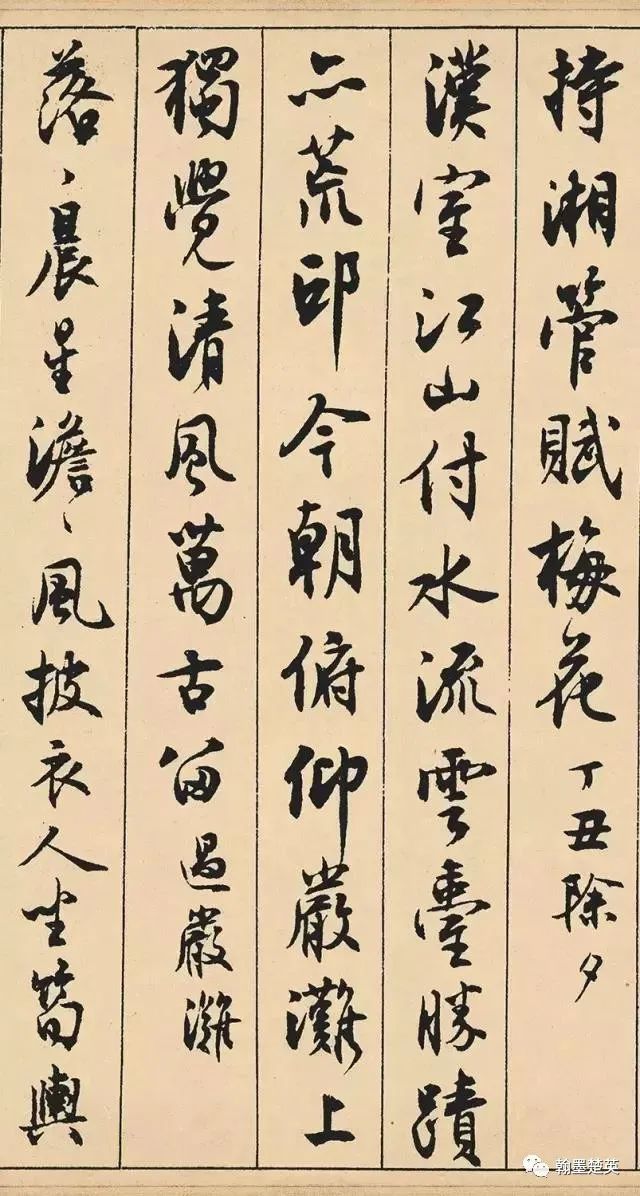 持湘管賦梅花 丁丑除夕
漢室江山付水流雲臺勝蹟
亦荒邱今朝俯仰嚴灘上
獨覺清風萬古留 過嚴灘
落〻晨星澹〻風披衣人坐筍輿
翰墨楚英